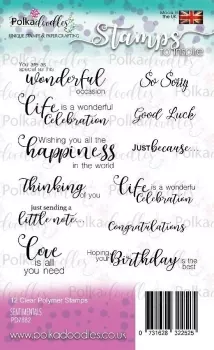 Polkadoodles
UNIQUE STAMPS & PAPERCRAFTING
the UK
Stamps
to inspire
You are as
special as this
wonderful
occasion
So Sorry
life is a wonderful
Celebration
Good Luck
Wishing you all the
happiness
in the world
JUST because....
Thinking
of you
life is a wonderful
Celebration
Just sending a
little note...
Congratulations
Love
is all
you need
Hoping your
Birthday is the
best
12 Clear Polymer Stamps
SENTIMENTALS
www.polkadoodles.co.uk
0 731628 322525